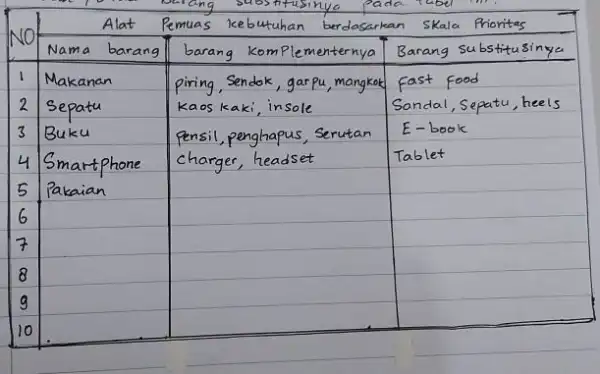 barang substitusinya pada tabel
Alat Pemuas kebutuhan berdasarkan Skala Prioritas
NO Nama barang barang Komplementernya Barang Substitusinya
1 Makanan piring, Sendok, garpu, mangkok fast food
2 Sepatu Kaos Kaki, insole Sandal, Sepatu, heels
3 Buku Pensil, penghapus, Serutan E-book
4 Smartphone charger, headset Tablet
5 Pakaian
6
7
8
9
10